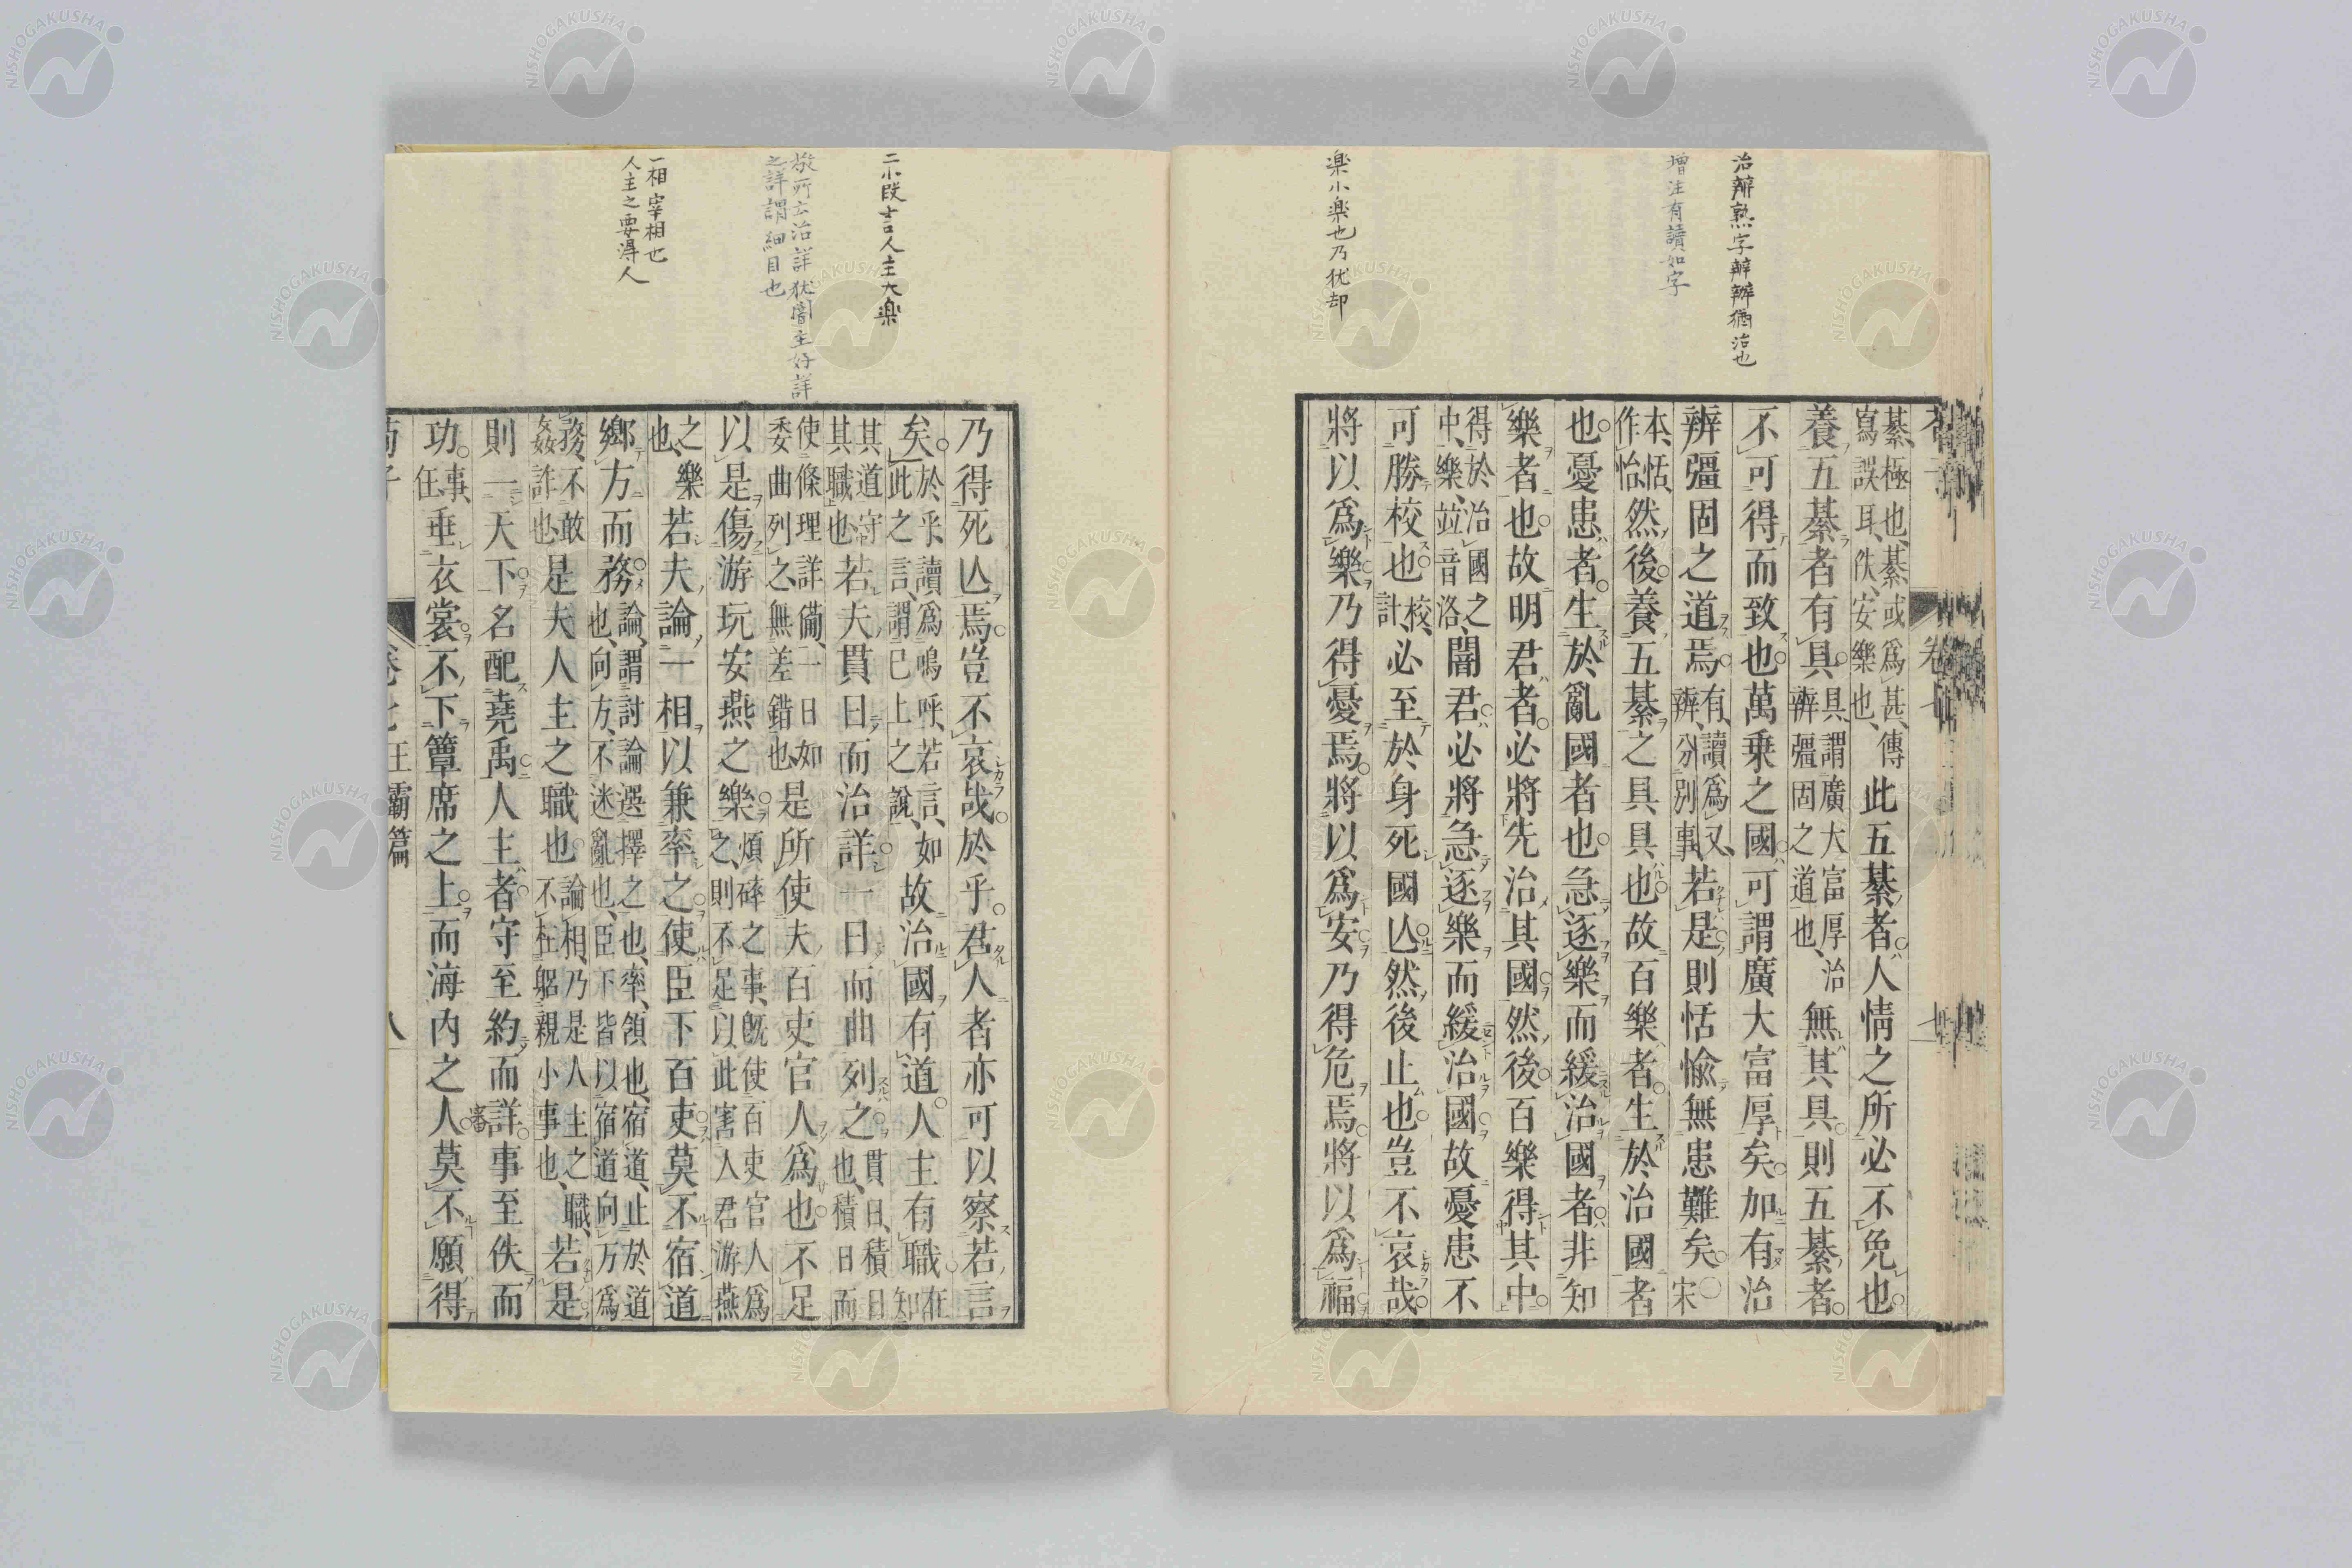 治辨熟字辨辨猶治也
増注有讀如字
楽小楽也乃犹却
綦、極也、綦或爲甚、傳
寫誤耳、佚、安樂也、
此五綦者人情之所必不免也
養五綦者有具
具謂廣大富厚治
辨彊固之道也、
無其具則五綦者
不可得而致也萬乗之國可謂廣大富厚矣加有治
辨彊固之道焉
有、讀爲又、
辨、分別事
若是則恬愉無患難矣
○宋
本、恬、
作怡
然後養五綦之具具也故百樂者生於治國者
也憂患者生於亂國者也急逐樂而緩治國者非知
樂者也故明君者必將先治其國然後百樂得其中
得於治國之
中、樂、竝音洛、
闇君必將急逐樂而緩治國故憂患不
可勝校也
校、
計、
必至於身死國亾然後止也豈不哀哉
將以爲樂乃得憂焉將以爲安乃得危焉將以爲福
二小段言人主大楽
敬所云治詳犹闇主好詳
之詳謂細目也
一相宰相也
人主之要得人
乃得死亾焉豈不哀哉於乎君人者亦可以察若言
矣
於乎、讀爲嗚呼、若言、如
此之言、謂已上之說、
故治國有道人主有職
在知
其道守
其職也
若夫貫日而治詳一日而曲列之
貫日、積日
也、積日而
使條理詳備、一日如
委曲列之無差錯也
是所使夫百吏官人爲也不足
以是傷游玩安燕之樂
煩碎之事、既使百吏官人爲
之、則不足以此害人君游燕
之樂
也、
若夫論一相以兼率之使臣下百吏莫不宿道
鄉方而務
論、謂討論選擇之也、率、領也、宿道、止於道
也、向方、不迷亂也、臣下皆以宿道向方爲
務、不敢
姦詐也
是夫人主之職也
論相、乃是人主之職、
不在躬親小事也、
若是
則一天下名配堯禹人主者守至約而詳事至佚而
功
事、
任
垂衣裳不下簟席之上而海内之人莫不願得
荀子
卷七王霸篇
八